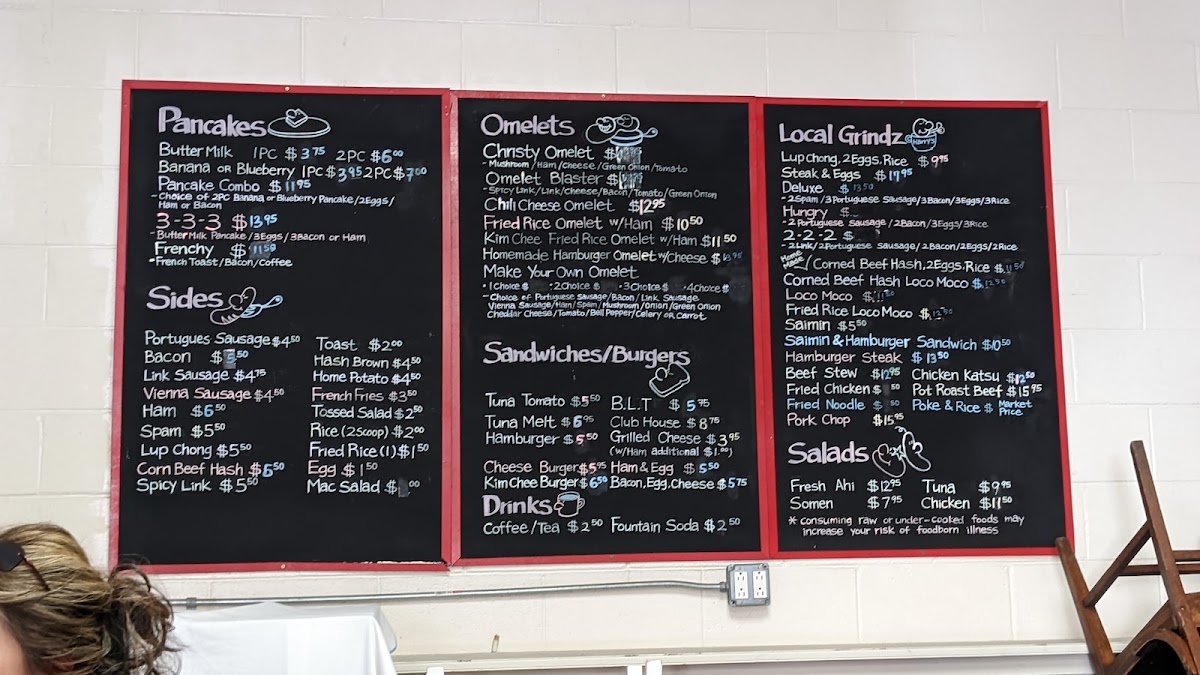 Pancakes
Butter Milk 1PC $3.75 2PC $6.00
Banana or Blueberry 1PC $3.95 2PC $7.00
Pancake Combo $11.95
- Choice of 2PC Banana or Blueberry Pancake/2Eggs/
Ham or Bacon
3-3-3 $13.95
- Butter Milk Pancake/3Eggs/3Bacon or Ham
Frenchy $11.50
* French Toast/Bacon/Coffee
Sides
Portugues Sausage $4.50
Bacon $ .50
Link Sausage $4.75
Vienna Sausage $4.50
Ham $6.50
Spam $5.50
Lup Chong $5.50
Corn Beef Hash $6.50
Spicy Link $5.50
Toast $2.00
Hash Brown $4.50
Home Potato $4.50
French Fries $3.50
Tossed Salad $2.50
Rice (2 Scoop) $2.00
Fried Rice (1) $1.50
Egg $1.50
Mac Salad $ .00
Omelets
Christy Omelet $
- Mushroom/Ham/Cheese/Green Onion/Tomato
Omelet Blaster $
- Spicy Link/Link/Cheese/Bacon/Tomato/Green Onion
Chili Cheese Omelet $12.95
Fried Rice Omelet w/Ham $10.50
Kim Chee Fried Rice Omelet w/Ham $11.50
Homemade Hamburger Omelet w/Cheese $13.95
Make Your Own Omelet
• 1 Choice $ • 2 Choice $ • 3 Choice $ • 4 Choice $
- Choice of Portuguese Sausage/Bacon/Link Sausage
Vienna Sausage/Ham/Spam/Mushroom/Onion/Green Onion
Cheddar Cheese/Tomato/Bell Pepper/Celery or Carrot
Sandwiches/Burgers
Tuna Tomato $5.50
Tuna Melt $6.95
Hamburger $5.50
Cheese Burger $5.95
Kim Chee Burger $6.50
B.L.T $5.95
Club House $8.75
Grilled Cheese $3.95
(w/Ham additional $1.00)
Ham & Egg $5.50
Bacon, Egg, Cheese $5.75
Drinks
Coffee/Tea $2.50 Fountain Soda $2.50
Local Grindz
Harry's
Lup Chong, 2Eggs, Rice $9.95
Steak & Eggs $17.95
Deluxe $13.50
- 2 Spam/3 Portuguese Sausage/3Bacon/3Eggs/3Rice
Hungry $
- 2 Portuguese Sausage/2Bacon/3Eggs/3Rice
2-2-2 $
- 2 Link/2 Portuguese Sausage/2Bacon/2Eggs/2Rice
Home Made/Corned Beef Hash, 2Eggs, Rice $11.50
Corned Beef Hash Loco Moco $12.50
Loco Moco $11.50
Fried Rice Loco Moco $12.50
Saimin $5.50
Saimin & Hamburger Sandwich $10.50
Hamburger Steak $13.50
Beef Stew $12.95
Fried Chicken $ .50
Fried Noodle $ .50
Pork Chop $15.95
Chicken Katsu $12.50
Pot Roast Beef $15.95
Poke & Rice $ Market Price
Salads
Fresh Ahi $12.95
Somen $7.95
Tuna $9.95
Chicken $11.50
* consuming raw or under-cooked foods may
increase your risk of foodborn illness